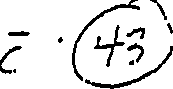 c̄ · 43